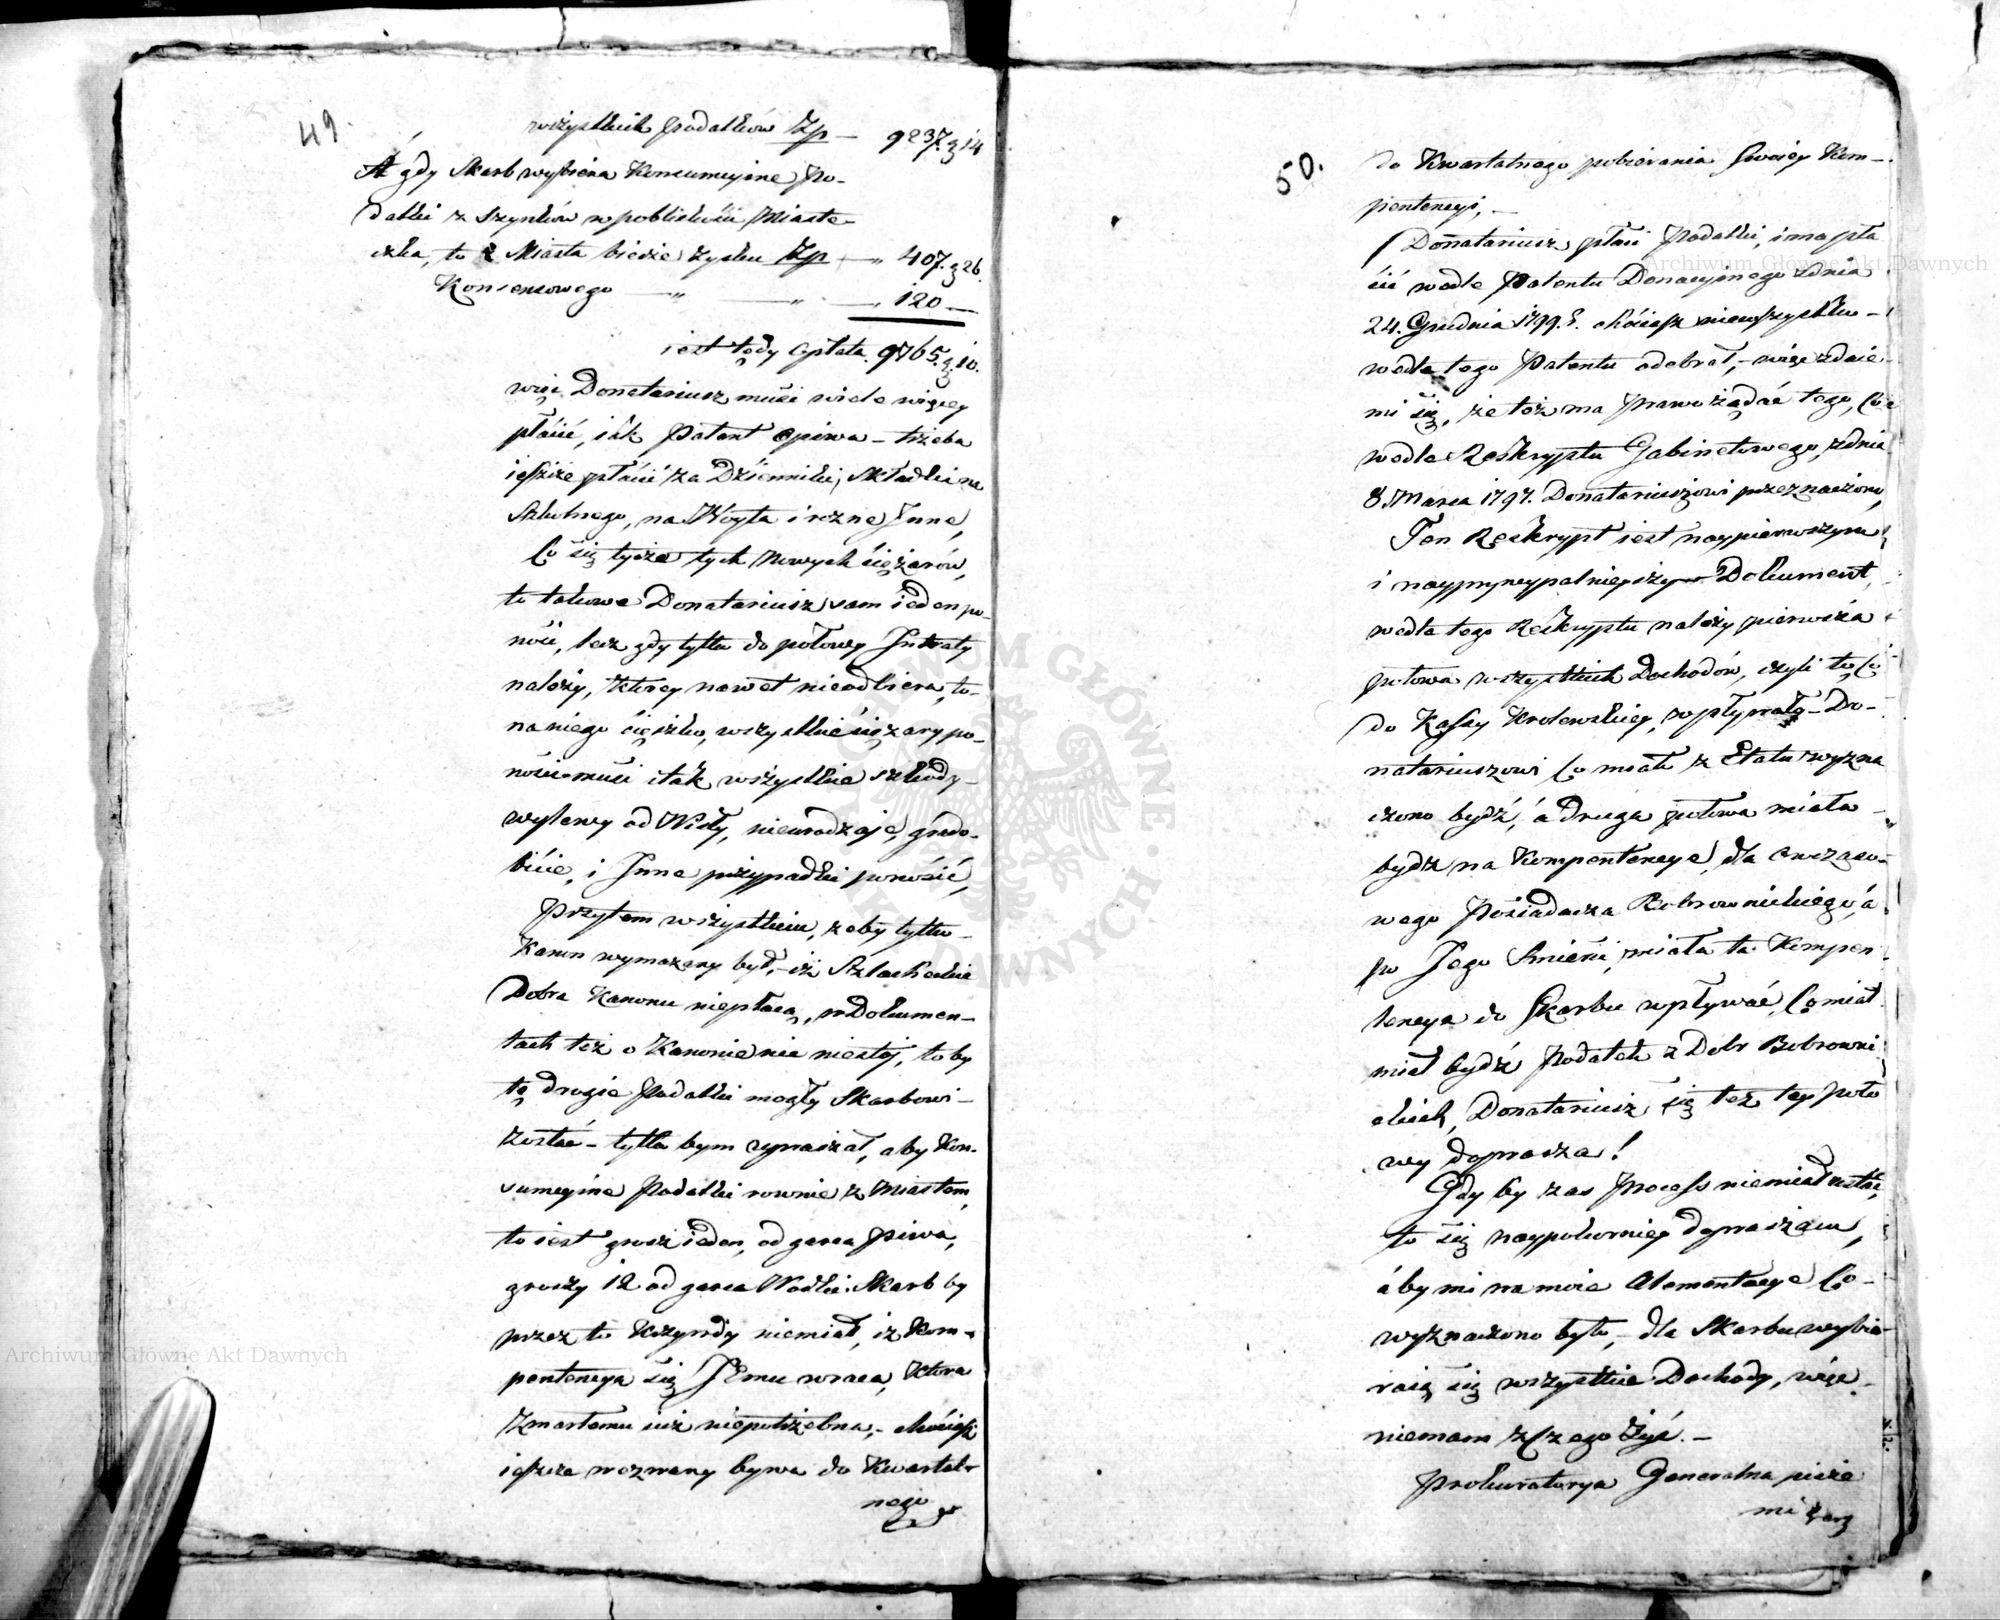 49.
wszystkich Podatków Zp — 9237. g 14
A gdy Skarb wybiera Konsumcyine Po-
datki z Szynków w pobliskości Miaste-
czka, to z Miasta biedże zysku Zp — " 407. g 26.
Konsensowego — " — " — " 120 —
iest tedy Opłata. 9765. g. 10.
więc Donatariusz musi wiele więcey
płácić, iák Patent opiewa — trzeba
ieszcze płácić za Dźienniki, Składki na
Szkolnego, na Woyta i rozne Inne,
Co się tycze tych Nowych ciężarów,
to takowe Donatariusz sam ieden po-
nosi, lecz gdy tylko do połowy Intraty
należy, ktorey nawet nieodbiera, to
na niego cięszko, wszystkie ciężary po-
nosić musi itak wszystkie szkody
wylewy od Wisły, nieurodzaje, grado-
bicie, i Inne przypadki ponosić,
Przytem wszystkim, żeby tylko
Kanon wymazany był, — iż Szlacheckie
Dobra Kanonu niepłacą, w Dokumen-
tach też o Kanonie nie niestoj, to by
te drugie Podatki mogły Skarbowi —
zostać — tylko bym upraszał, aby Kon-
sumcyine Podatki rownie z Miastem,
to iest grosz ieden, od garca Piwa,
groszy 12 od garca Wodki. Skarb by
przez to Krzywdy niemiał, iż Kom-
petencya się Jemu wraca, ktora
Zmarłemu iuż niepotrzebna, — chociasz
ieszcze wezwany bywa do Kwartal-
nego
50.
do Kwartalnego pobierania Swoiey Kom-
pentencyi, —
Donatariusz płaci Podatki, i ma pła
ćić wedle Patentu Donacyinego zdnia
24. Grudnia 1799. r. chóciasz niewszystko —
wedle tego Patentu odebrał, — więc zdaie
mi się, że też ma Prawo żądać tego, Co
wedle Reskryptu Gabinetowego, zdnia
8 Marca 1797. Donatariuszowi przeznaczono,
Ten Reskrypt iest naypierwszym
i naypryncypalnieyszym Dokument,
wedle tego Reskryptu należy pierwsza
połowa wszystkich Dochodów, czyli to, Co
do Kassy Krolewskiey, wpływało — Do-
natariuszowi Co miało z Etatu wyzna
czono bydź, á druga połowa miała —
bydz na Kompentencye, dla owczaso-
wego Posiadacza Bobrownickiego, á
po Jego Śmierći, miała ta Kompen
tencya do Skarbu wpływáć, Co miał
miał bydź Podatek z Dobr Bobrowni
ckich, Donatariusz się też tey poło
wy doprasza!
Gdy by zas Process niemiał ustać,
to się naypokorniey dopraszam,
áby mi na moie Alementacye Co —
wyznaczono było, — dla Skarbu wybie-
raią się wszystkie Dochody, więc
niemam z czego żyć. —
Prokuratorya Generalna pisze
mi
Archiwum Główne Akt Dawnych
Archiwum Główne Akt Dawnych
ARCHIWUM GŁÓWNE AKT DAWNYCH